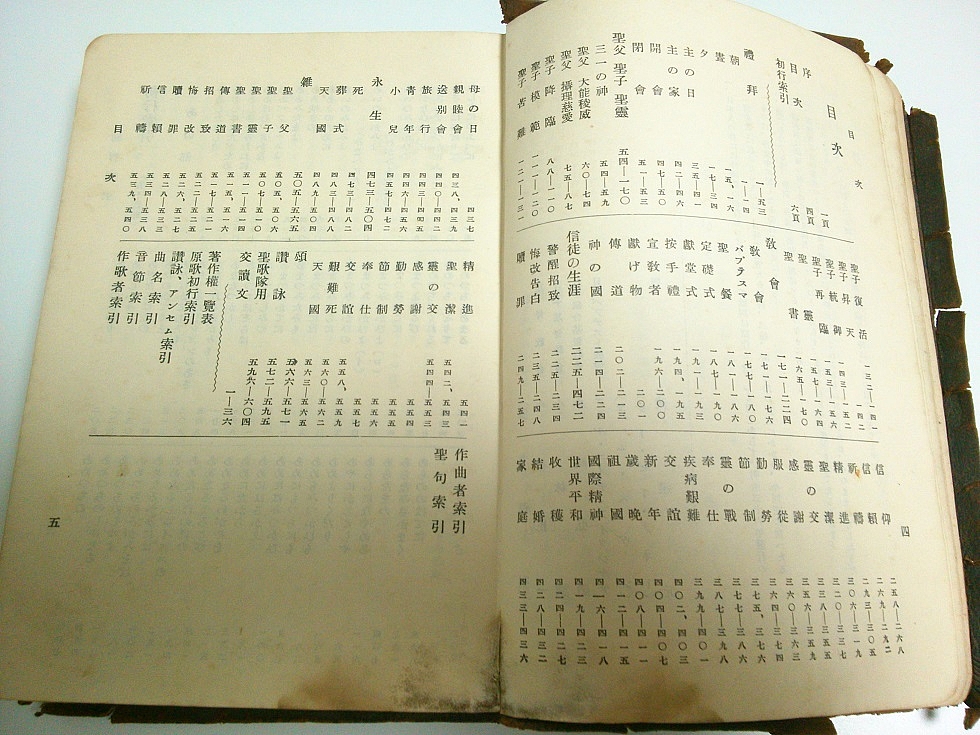 目次
四
目次
序 一頁
目次 四頁
初行索引 六頁
禮拜 一—五三
朝 一—一四
晝 一五、一六
夕 一七—三四
主の日 三五—四一
主の家 四二—四六
開會 四七—五〇
閉會 五一—五三
聖父 聖子 聖靈 五四—一七〇
三一の神 五四—五九
聖父 大能稜威 六〇—七四
聖父 攝理慈愛 七五—八七
聖子 降臨 八八—一一〇
聖子 模範 一一一—一二〇
聖子 苦難 一二一—一三一
聖子 復活 一三二—一四一
聖子 昇天 一四二
聖子 統御 一四三—一五二
聖子 再臨 一五三—一五六
聖靈 一五七—一六四
聖書 一六五—一七〇
敎會 一七一—二二四
敎會 一七一—一七六
バプテスマ 一七七—一八〇
聖餐 一八一—一八六
定礎式 一八七—一九〇
獻堂式 一九一—一九三
按手禮 一九四、一九五
宣敎者 一九六—二〇〇
獻げ物 二〇一
傳道 二〇二—二一三
神の國 二一四—二二四
信徒の生涯 二二五—四七二
警醒招致 二二五—二三四
悔改告白 二三五—二四八
贖罪 二四九—二五七
信仰 二五八—二六八
信賴 二六九—二九二
祈禱 二九三—三〇五
精進 三〇六—三一九
聖潔 三二〇—三三七
靈の交 三三八—三五五
感謝 三五六—三五九
服從 三六〇—三六三
勤勞 三六四—三七四
節制 三七五、三七六
靈の戰 三七七—三八六
奉仕 三八七—三九八
疾病艱難 三九九—四〇一
交誼 四〇二、四〇三
新年 四〇四—四〇七
歲晚 四〇八—四一一
祖國 四一二—四一五
國際精神 四一六—四一八
世界平和 四一九—四二三
收穫 四二四—四二七
結婚 四二八—四三二
家庭 四三三—四三六
母の日 四三七
親睦會 四三八、四三九
送別會 四四〇—四四二
旅行 四四三—四四五
靑年 四四六—四五六
小兒 四五七—四七二
永生 四七三—五〇四
死 四七三—四八二
葬式 四八三—四八八
天國 四八九—五〇四
雜 五〇五—五六五
聖父 五〇五、五〇六
聖子 五〇七—五一〇
聖靈 五一一—五一四
聖書 五一五、五一六
傳道 五一七—五二一
招致 五二二—五二五
悔改 五二六、五二七
贖罪 五二八—五三三
信賴 五三四—五三八
祈禱 五三九、五四〇
精進 五四一
聖潔 五四二、五四三
靈の交 五四四—五五三
感謝 五五四
勤勞 五五五
節制 五五六
奉仕 五五七
交誼 五五八、五五九
艱難死 五六〇—五六二
天國 五六三—五六五
頌 五六六—五七一
讚詠 五七二—五九五
聖歌隊用 五九六—六〇四
交讀文 一—三六
著作權一覽表
原歌初行索引
讚詠、アンセム索引
曲名索引
音節索引
作歌者索引
作曲者索引
聖句索引
目次
五